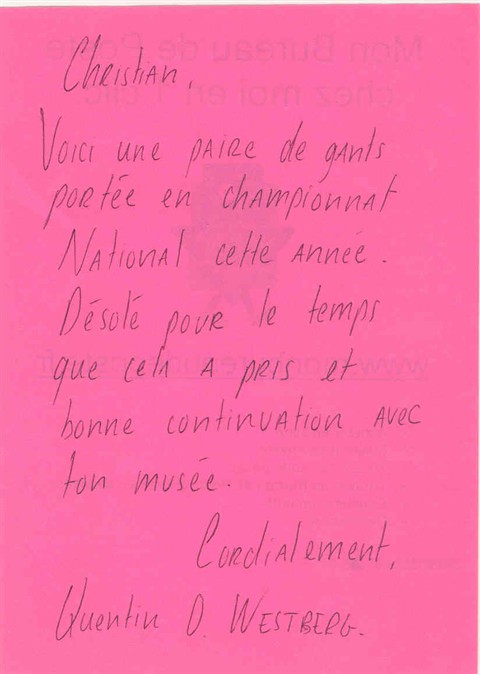 Christian,
Voici une paire de gants
portée en championnat
National cette année.
Désolé pour le temps
que cela a pris et
bonne continuation avec
ton musée.
Cordialement,
Quentin O. WESTBERG.